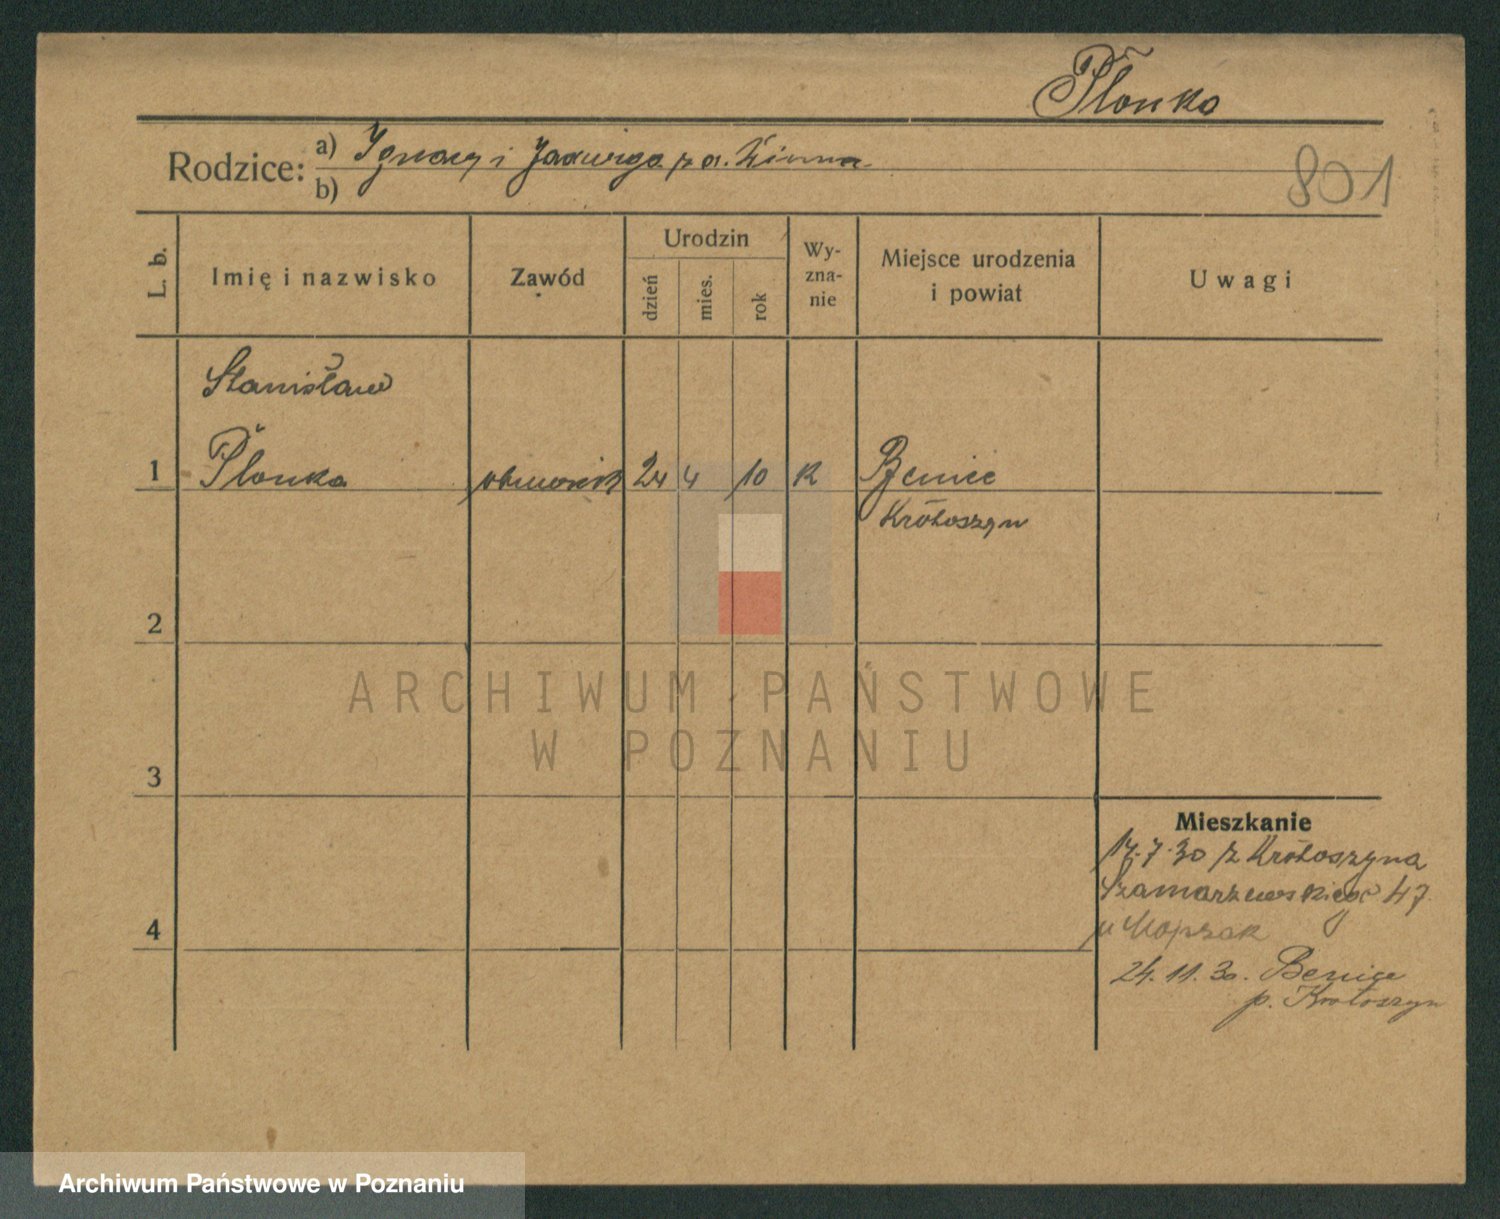 Płonka
Rodzice: a) Ignacy i Jadwiga z d. Zimna
b)
801
L. b.
Imię i nazwisko
Zawód
Urodzin
dzień
mies.
rok
Wy-
zna-
nie
Miejsce urodzenia
i powiat
Uwagi
Stanisław
1 Płonka 24 4 10 K Benice
Krotoszyn
2
ARCHIWUM PAŃSTWOWE
W POZNANIU
3
Mieszkanie
17.7.30 z Krotoszyna
Szamarzewskiego 47
4
24.11.30. Benice
p. Krotoszyn
Archiwum Państwowe w Poznaniu